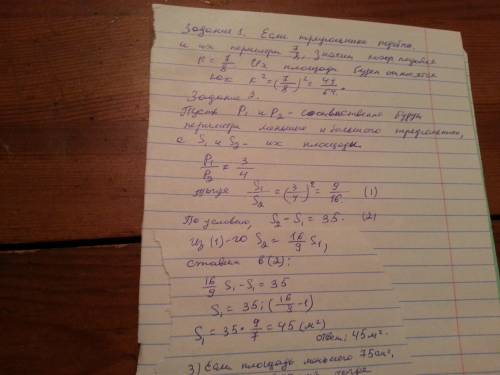 Задание 1. Если треугольники подобны
и их периметры 7/8, значит коэф. подобия
K = 7/8. Их площади будут относится
как K² = (7/8)² = 49/64.
Задание 3.
Пусть P₁ и P₂ - соответственно будут
периметры меньшего и большего треугольников,
а S₁ и S₂ - их площади.
P₁/P₂ = 3/4
тогда S₁/S₂ = (3/4)² = 9/16 (1)
По условию, S₂ - S₁ = 35. (2)
Из (1)-го S₂ = 16/9 S₁,
ставим в (2):
16/9 S₁ - S₁ = 35
S₁ = 35 : (16/9 - 1)
S₁ = 35 * 9/7 = 45 (м²)
Ответ: 45 м².
3) Если площадь меньшего 75 см²,
тогда